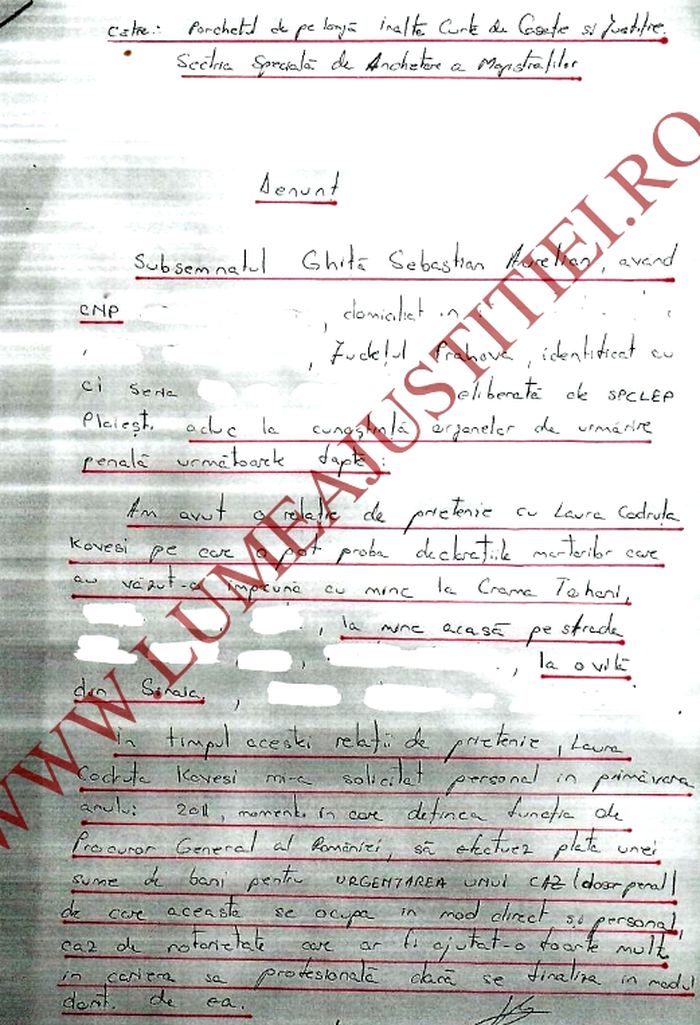 Către: Parchetul de pe langă Inalta Curte de Casație si Justiție.
Secția Specială de Anchetare a Magistraților
Denunt
Subsemnatul Ghită Sebastian Aurelian, avand
CNP , domiciliat in
, , Județul Prahova, identificat cu
ci seria eliberată de SPCLEP
Ploiești aduc la cunoștință organelor de urmărire
penală următoarele fapte:
Am avut o relație de prietenie cu Laura Codruța
Kovesi pe care o pot proba declarațiile martorilor care
au văzut-o impreună cu mine la Crama Tohani,
, la mine acasă pe strada
, , la o vilă
din Sinaia. ,
In timpul acestei relații de prietenie, Laura
Codruța Kovesi mi-a solicitat personal in primăvara
anului 2011, moment in care deținea funcția de
Procuror General al României, să efectuez plata unei
sume de bani pentru URGENTAREA UNUI CAZ (dosar penal)
de care aceasta se ocupa in mod direct și personal,
caz de notorietate care ar fi ajutat-o foarte mult
in cariera sa profesională dacă se finaliza in modul
dorit de ea.
WWW.LUMEAJUSTITIEI.RO